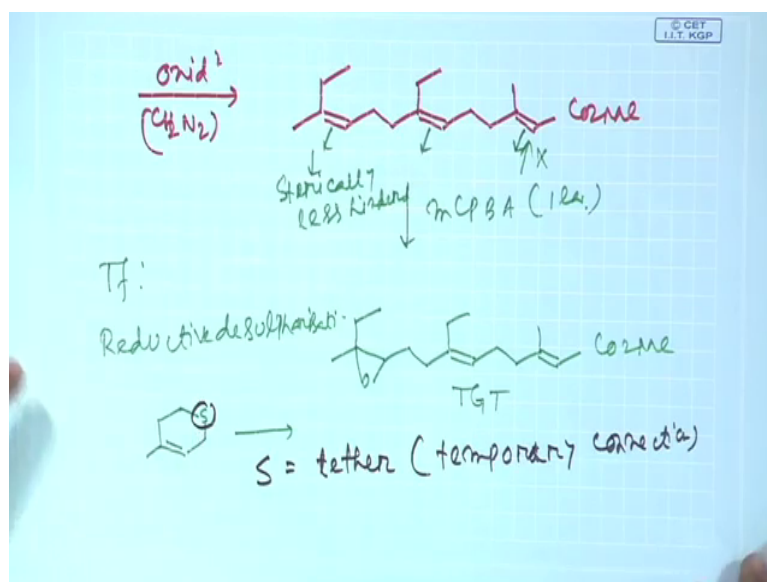 © CET
I.I.T. KGP
oxidⁿ
(CH2N2)
CO2Me
X
Sterically
less hindered
mCPBA (1 eq.)
Tf:
Reductive desulphurisati.
O
CO2Me
TGT
S
S = tether (temporary connectiⁿ)